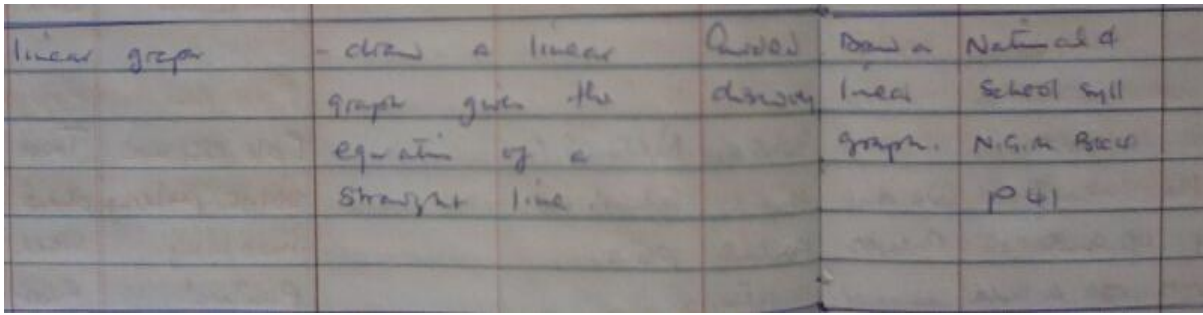 linear graph
- draw a linear
graph given the
equation of a
straight line.
Guided
discovery
Draw a
linear
graph.
National &
School Syll
N.G.M Book
P 41